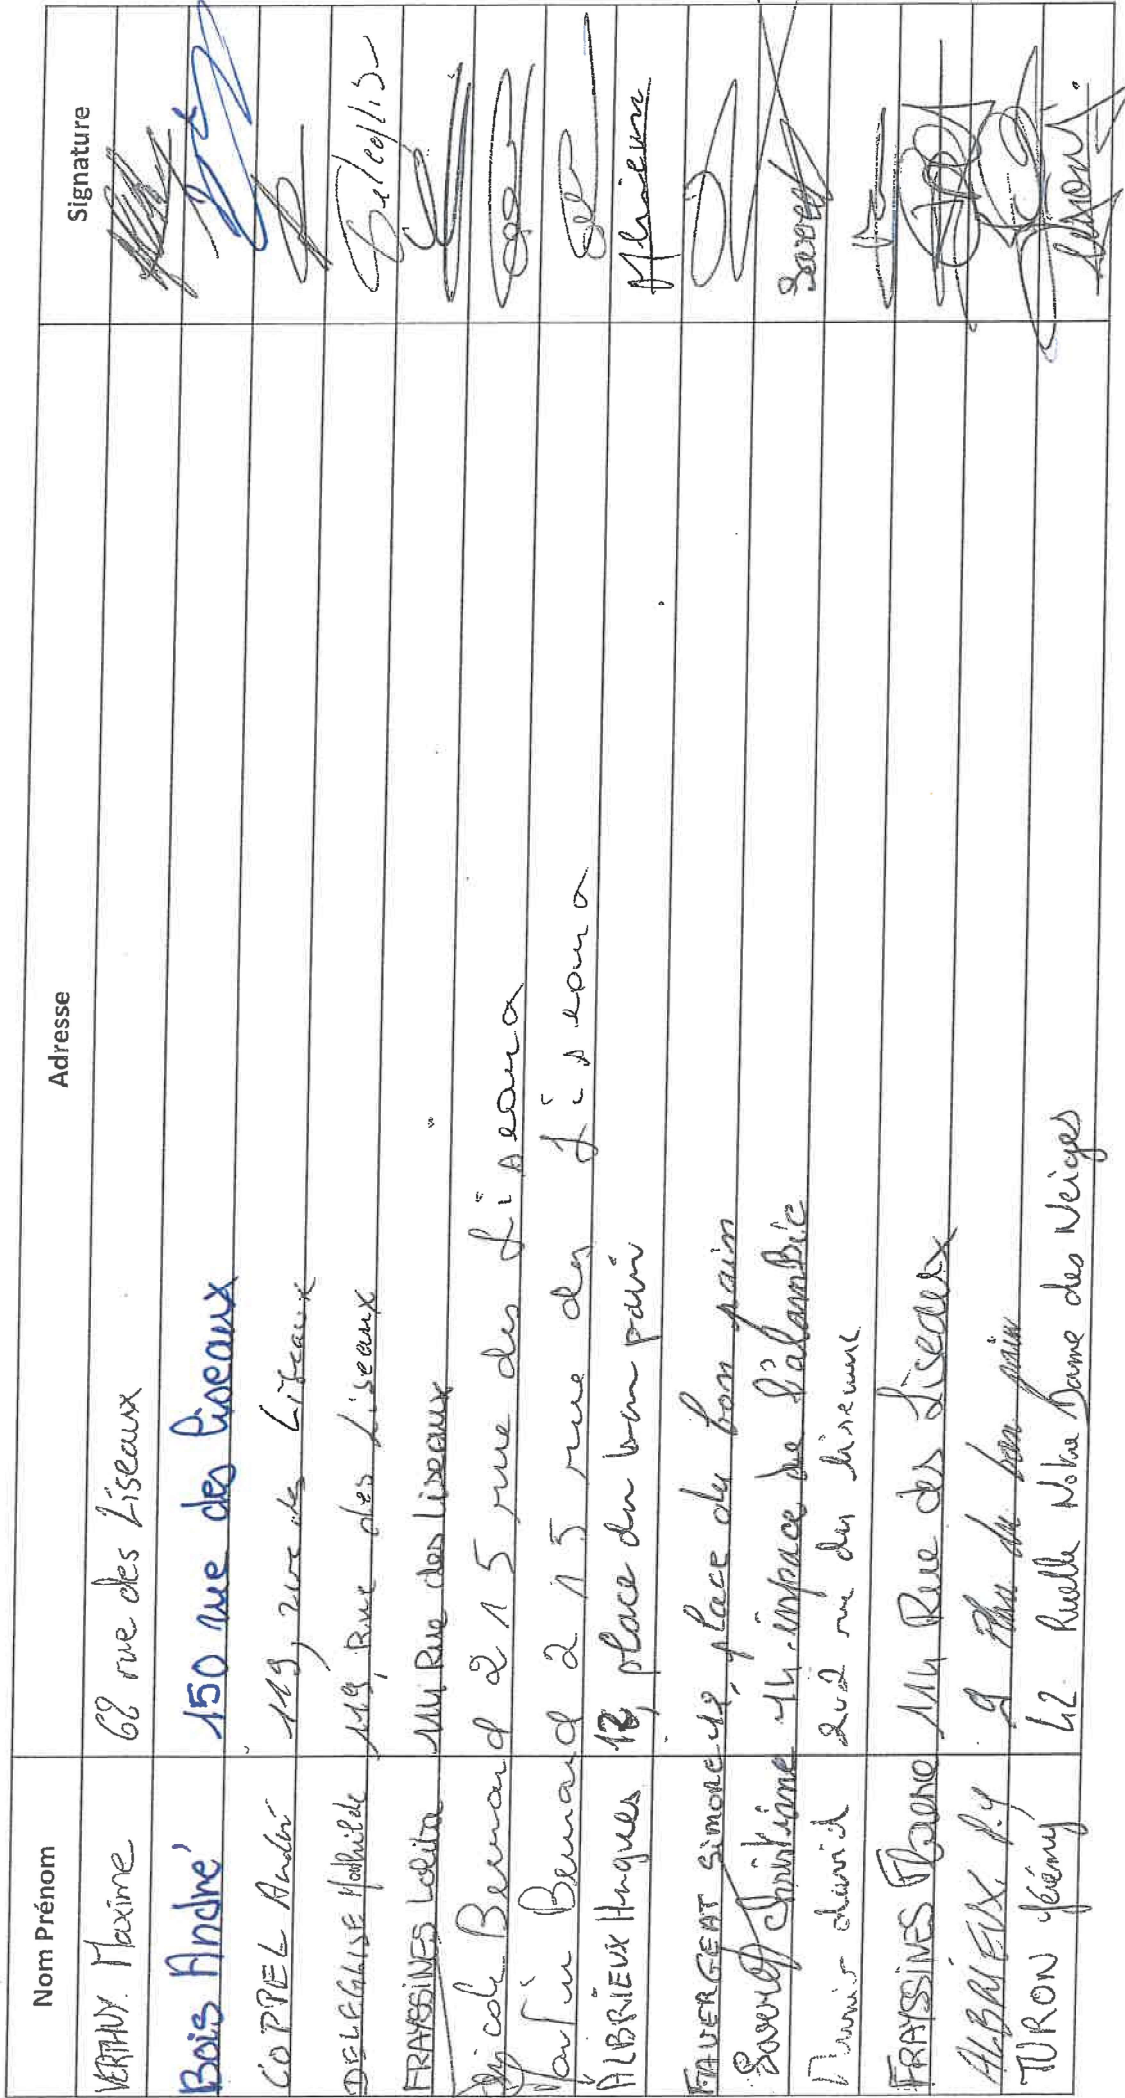 Nom Prénom Adresse Signature
VERTHUY Maxime 68 rue des Liseaux
Bois André 150 rue des liseaux
COPPEL André 119, rue des Liseaux
DELEGLISE Mathilde 119, Rue des Liseaux
FRAYSSINES Lolita 114 Rue des liseaux
Nicole Bernard 215 rue des Liseaux
Martin Bernard 215 rue des Liseaux
ALBRIEUX Hugues 12, place du bon pain
FAVERGEAT Simone 12, place du bon pain
Christiane 14 impace de l'alambic
david 202 rue des liseaux
FRAYSSINES 114 Rue des Liseaux
ALBRIEUX P.Y 9 Place du bon pain
TURON Jérémy 42 Ruelle Notre Dame des Neiges